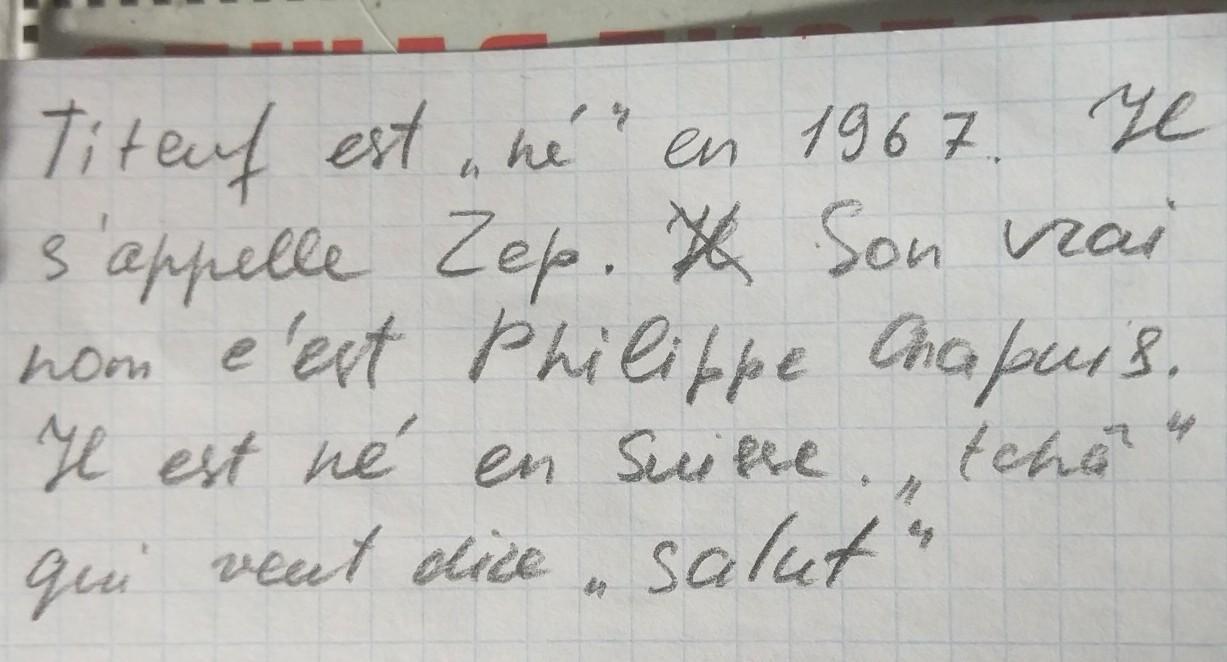 Titeuf est „né“ en 1967. Il
s'appelle Zep. Son vrai
nom c'est Philippe Chapuis.
Il est né en Suisse. „tchô“
qui veut dire „salut“